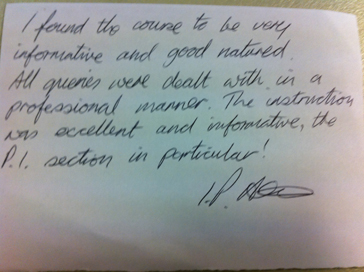 I found the course to be very
informative and good natured.
All queries were dealt with in a
professional manner. The instruction
was excellent and informative, the
P.I. section in particular!
I.P.